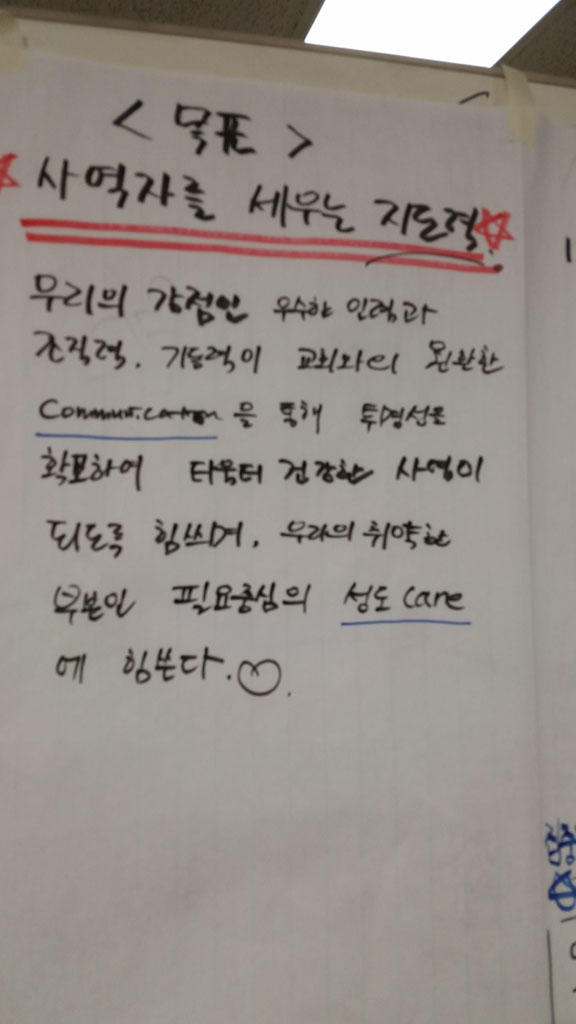 < 목표 >
사역자를 세우는 지도력
우리의 강점인 우수한 인력과
조직력, 기동력이 교회와의 원완한
Communication을 통해 투명성을
확보하여 더욱더 건강한 사영이
되도록 힘쓰며, 우리의 취약한
부분인 필요중심의 성도 care
에 힘쓴다.